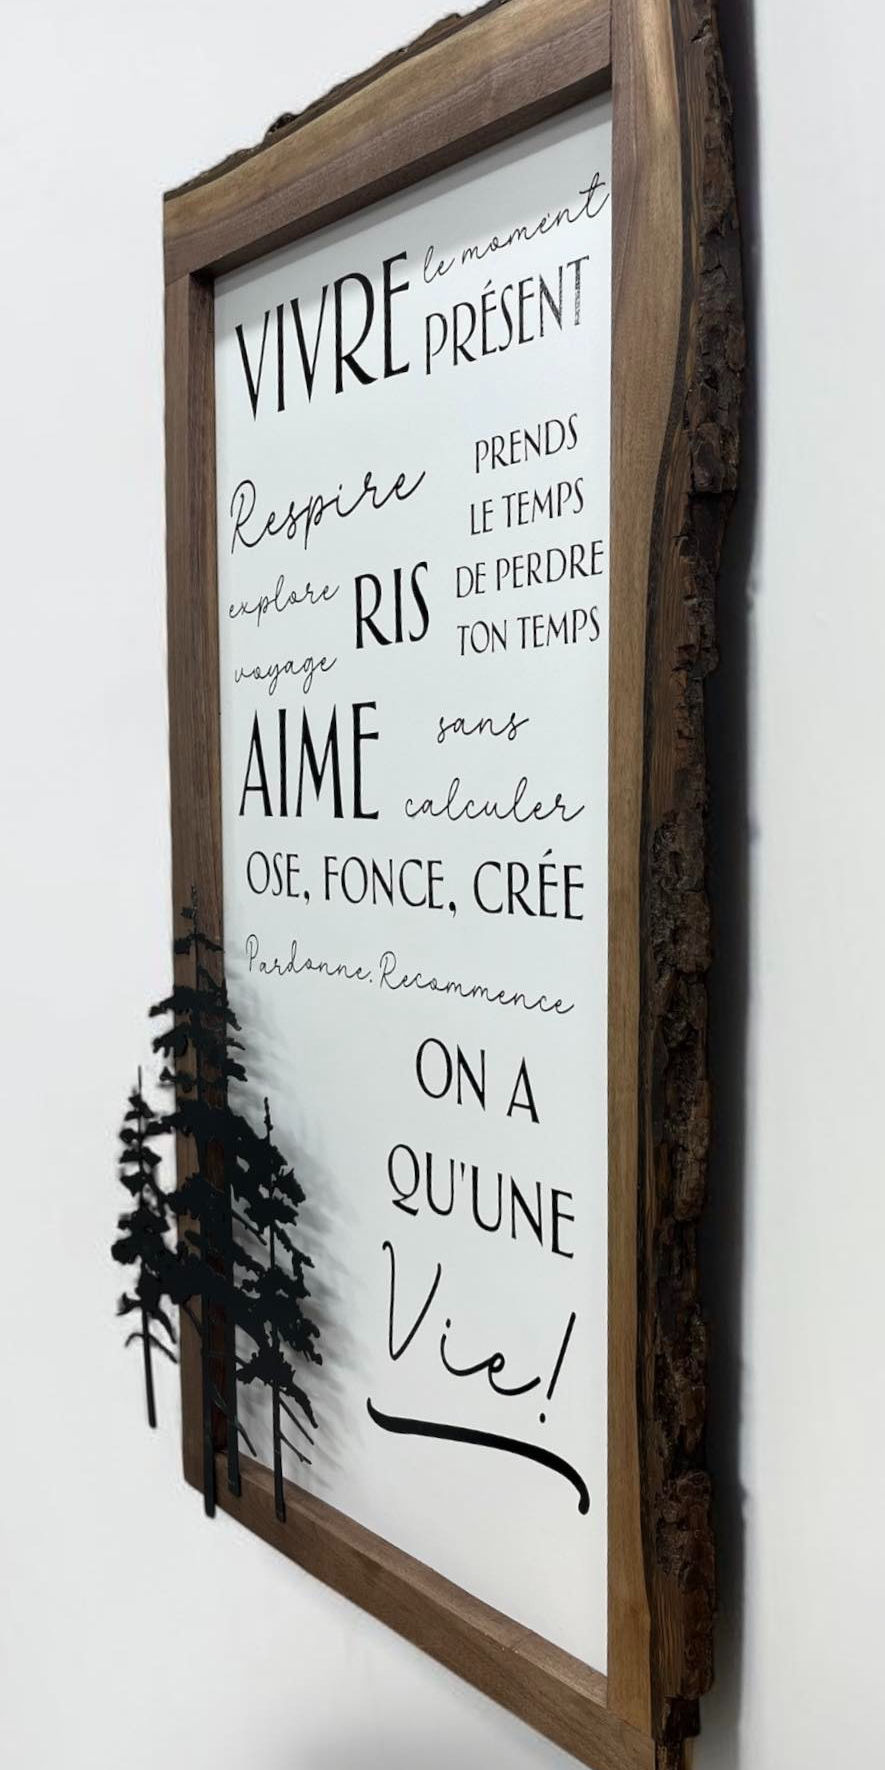 VIVRE le moment
PRÉSENT
Respire
explore RIS
voyage
PRENDS
LE TEMPS
DE PERDRE
TON TEMPS
AIME sans
calculer
OSE, FONCE, CRÉE
Pardonne. Recommence
ON A
QU'UNE
Vie!